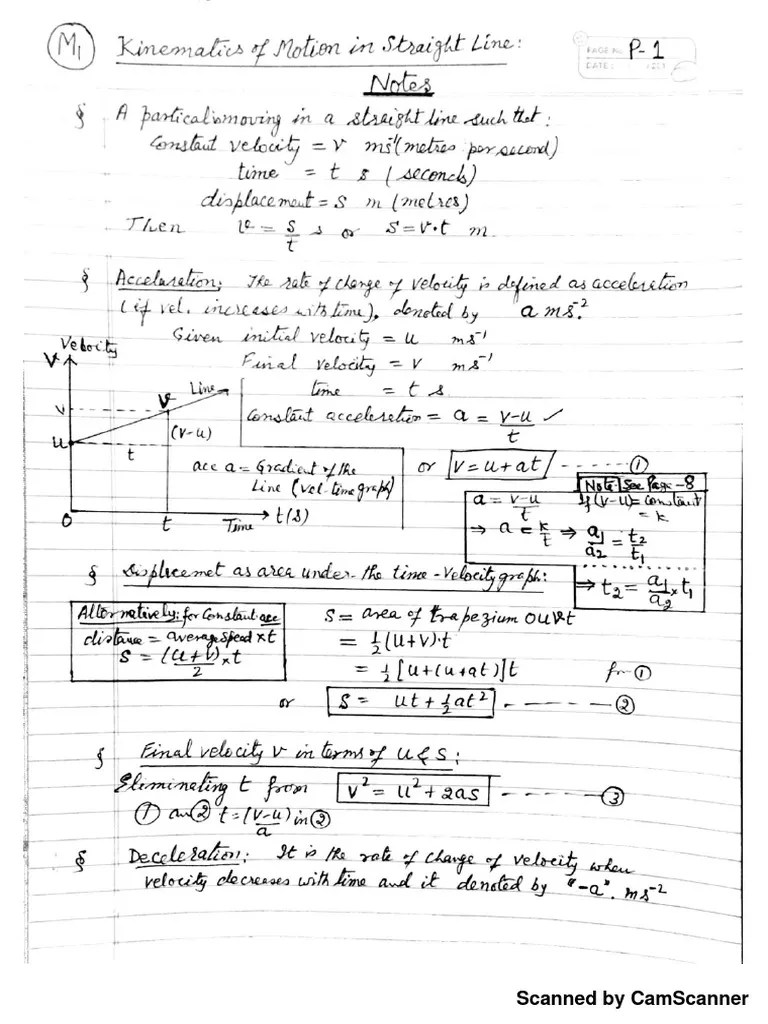 M1 Kinematics of Motion in Straight Line:
PAGE No. P-1
DATE:
Notes
§ A particalismoving in a straight line such that:
Constant velocity = v ms⁻¹ (metres per second)
time = t s (seconds)
displacement = S m (metres)
Then v = S/t s or S = v·t m
§ Acceleration: The rate of change of velocity is defined as acceleration
(if vel. increases with time), denoted by a ms⁻².
Given initial velocity = u ms⁻¹
Final velocity = v ms⁻¹
time = t s
Constant acceleration = a = (v-u)/t ✓
or v = u + at ------ ①
Velocity
V
Line
v
V
(v-u)
u
t
O
t
Time
t(s)
acc a = Gradient of the
Line (vel-time graph)
Note See Page-8
a = (v-u)/t If (v-u) = constant
= k
⇒ a = k/t ⇒ a₁/a₂ = t₂/t₁
⇒ t₂ = a₁/a₂ × t₁
§ Displacmet as area under the time-velocity graph:
Alternatively: for constant acc
distance = average speed × t
S = (u+v)/2 × t
S = area of trapezium OUVt
= ½(u+v)·t
= ½[u+(u+at)]t fr ①
or S = ut + ½at² ------ ②
§ Final velocity v in terms of u & s:
Eliminating t from v² = u² + 2as ------ ③
① and ② t = (v-u)/a in ②
§ Deceleration: It is the rate of change of velocity when
velocity decreases with time and it denoted by "-a". ms⁻²
Scanned by CamScanner